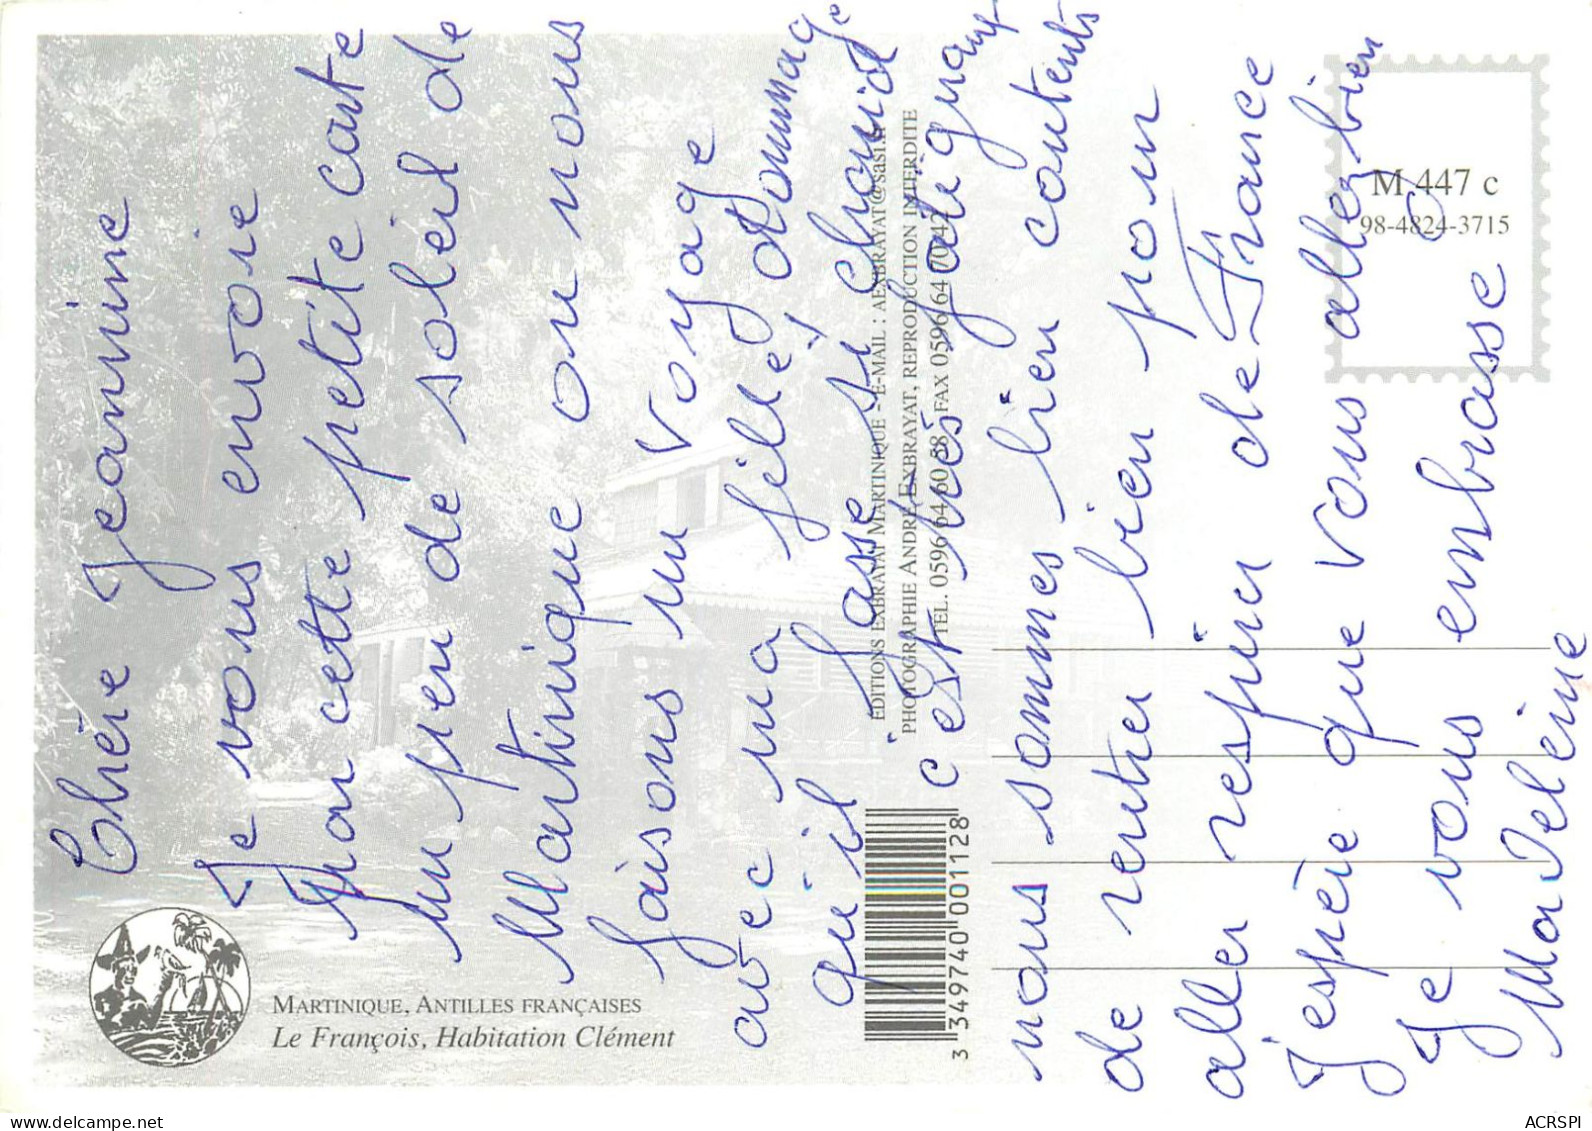 Chère Jeannine
Je vous envoie
par cette petite carte
un peu de soleil de
Martinique ou nous
faisons un voyage
avec ma fille, dommage
qu'il fasse si chaud
c'est très fatiguant
nous sommes bien contents
de rentrer bien pour
aller respirer de France
J'espère que vous allez bien
Je vous embrasse
Madeleine
MARTINIQUE, ANTILLES FRANÇAISES
Le François, Habitation Clément
EDITIONS EXBRAYAT MARTINIQUE - E-MAIL : AEXBRAYAT@sasi.fr
PHOTOGRAPHIE ANDRÉ EXBRAYAT, REPRODUCTION INTERDITE
TEL. 0596 64 60 58 FAX 0596 64 70 42
3 349740 001128
M 447 c
98-4824-3715
www.delcampe.net
ACRSPI